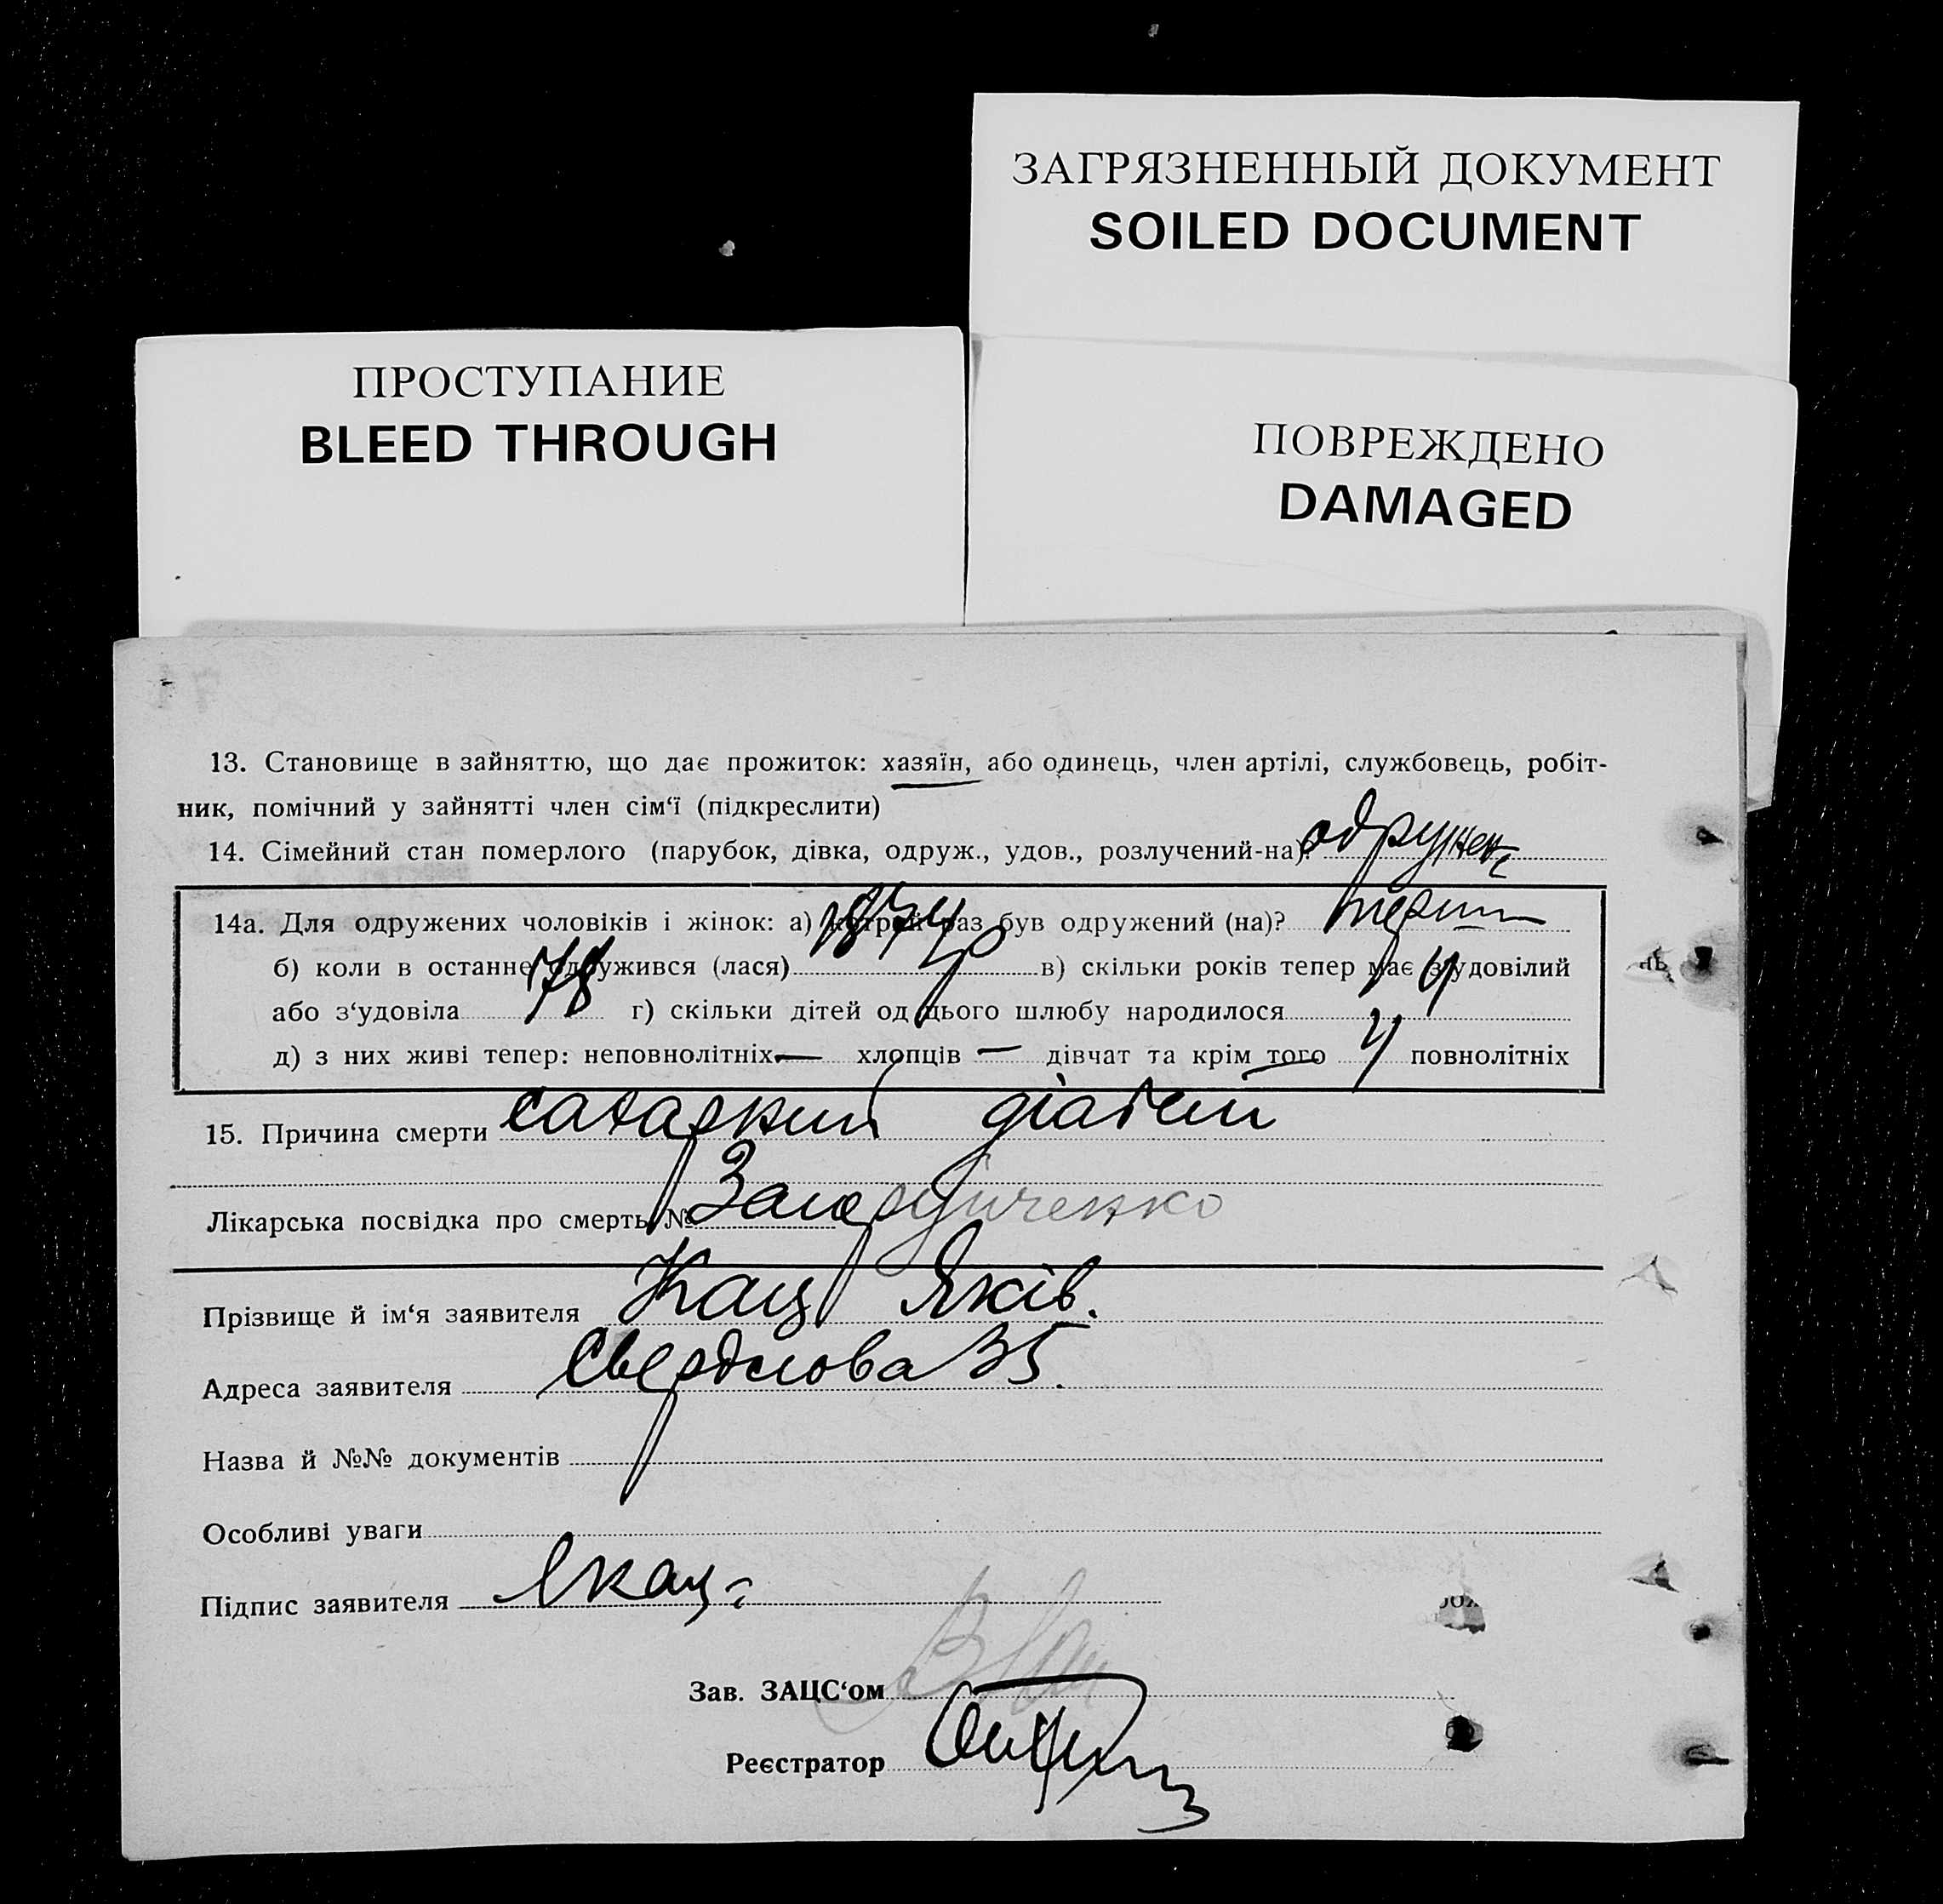 ЗАГРЯЗНЕННЫЙ ДОКУМЕНТ
SOILED DOCUMENT
ПРОСТУПАНИЕ
BLEED THROUGH
ПОВРЕЖДЕНО
DAMAGED
13. Становище в зайняттю, що дає прожиток: хазяїн, або одинець, член артілі, службовець, робіт-
ник, помічний у зайнятті член сім‘ї (підкреслити)
14. Сімейний стан померлого (парубок, дівка, одруж., удов., розлучений-на).
14а. Для одружених чоловіків і жінок: а) котрий раз був одружений (на)?
б) коли в останнє одружився (лася) в) скільки років тепер має з‘удовілий
або з‘удовіла 78 г) скільки дітей од цього шлюбу народилося 4
д) з них живі тепер: неповнолітніх — хлопців — дівчат та крім того 4 повнолітніх
15. Причина смерти сахарний діабет
Лікарська посвідка про смерть №
Прізвище й ім‘я заявителя Кац Яків.
Адреса заявителя Свердлова 35.
Назва й №№ документів
Особливі уваги
Підпис заявителя ЯКац
Зав. ЗАЦС‘ом
Реєстратор